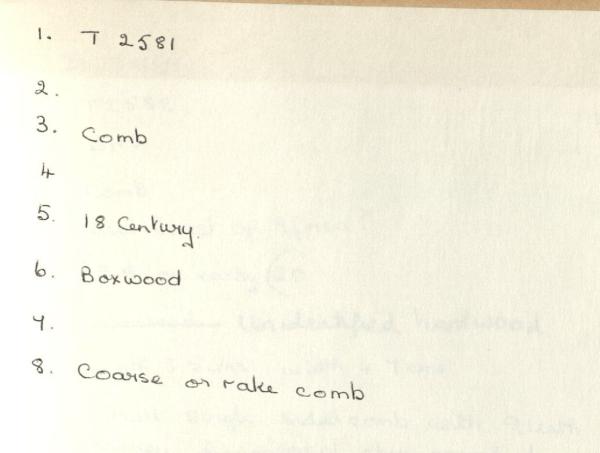 1. T 2581
2.
3. Comb
4
5. 18 Century.
6. Boxwood
7.
8. Coarse or rake comb